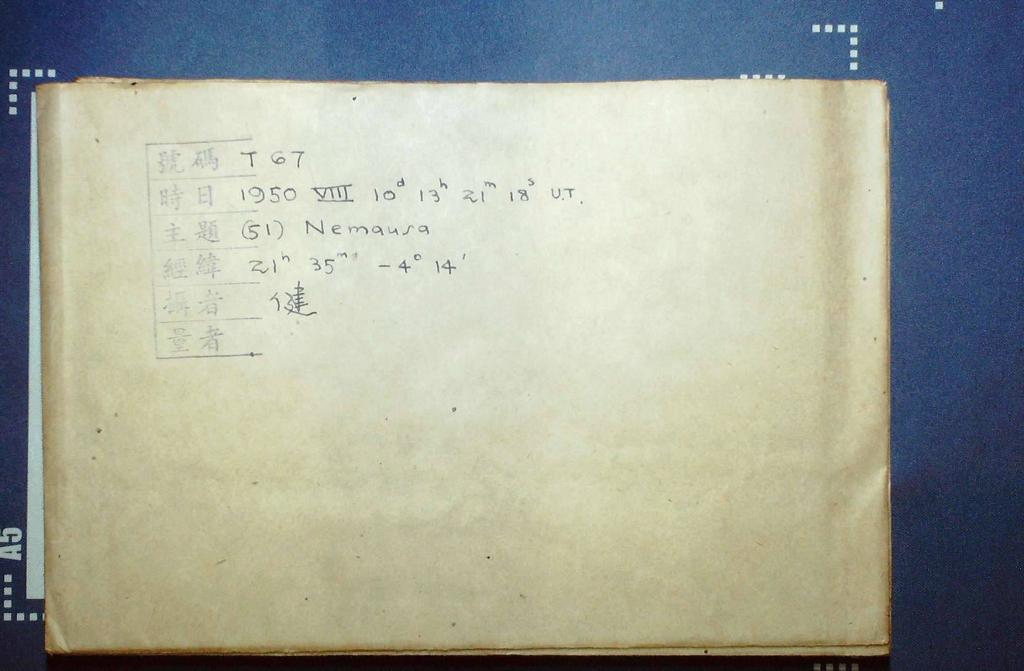 號碼 T 67
時日 1950 VIII 10ᵈ 13ʰ 21ᵐ 18ˢ U.T.
主題 (51) Nemausa
經緯 21ʰ 35ᵐ -4° 14'
攝者 健
量者
A5